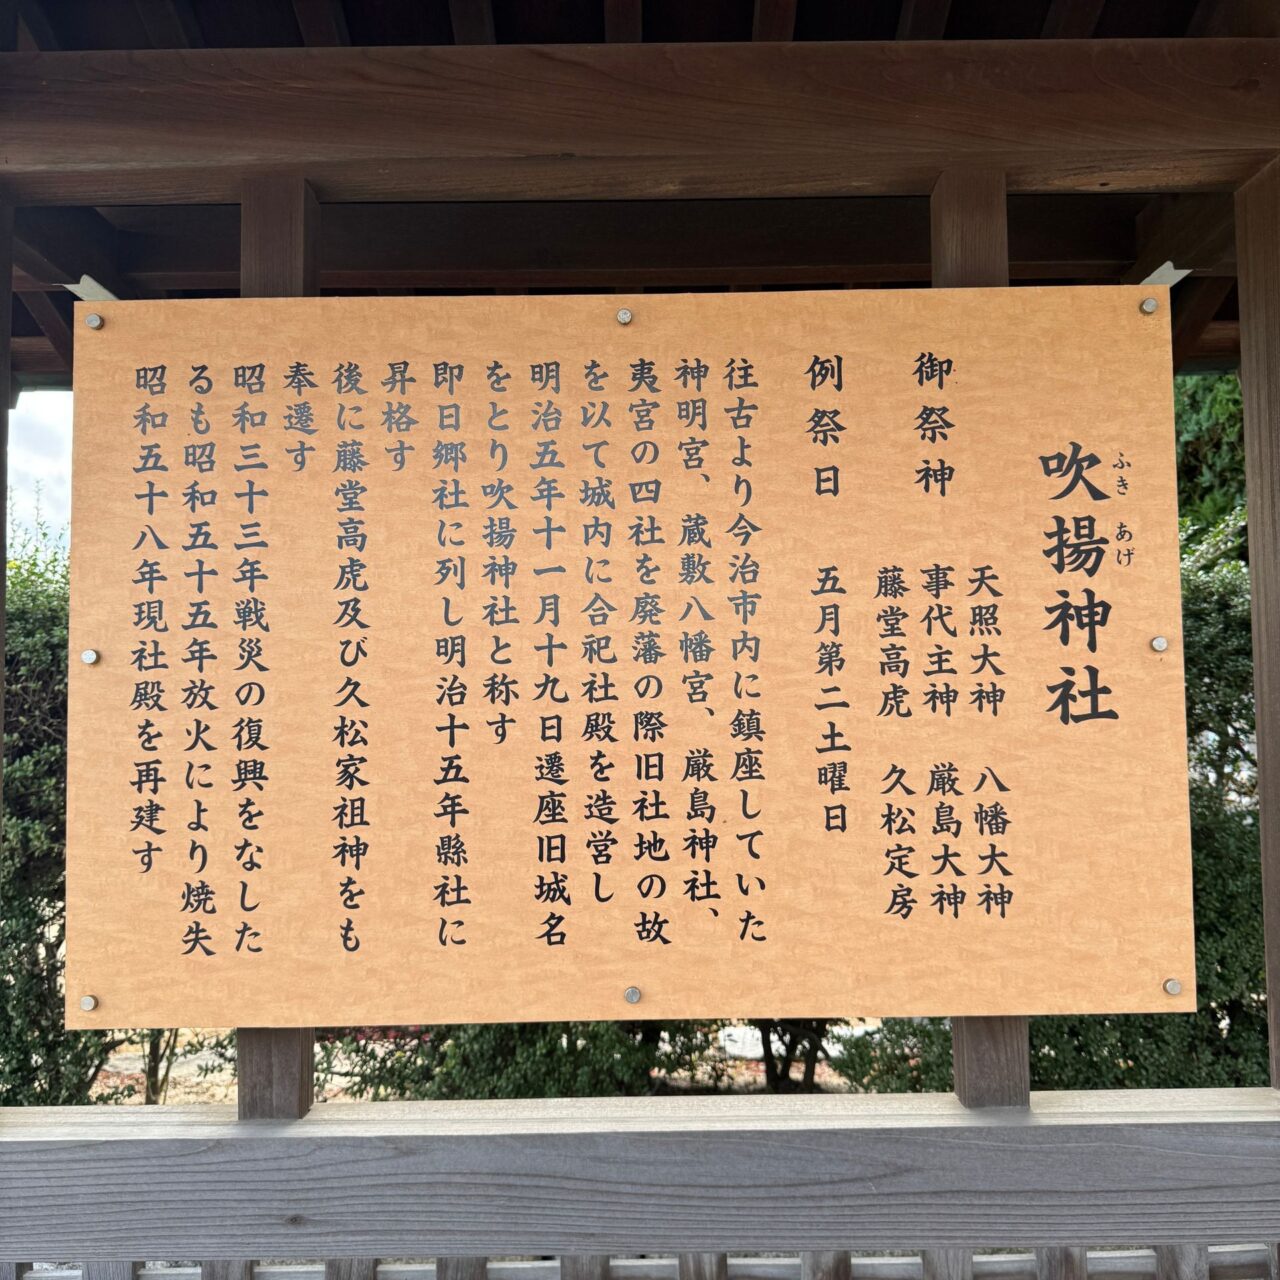 吹揚神社
ふきあげ
御祭神
天照大神 八幡大神
事代主神 厳島大神
藤堂高虎 久松定房
例祭日 五月第二土曜日
往古より今治市内に鎮座していた
神明宮、蔵敷八幡宮、厳島神社、
夷宮の四社を廃藩の際旧社地の故
を以て城内に合祀社殿を造営し
明治五年十一月十九日遷座旧城名
をとり吹揚神社と称す
即日郷社に列し明治十五年縣社に
昇格す
後に藤堂高虎及び久松家祖神をも
奉遷す
昭和三十三年戦災の復興をなした
るも昭和五十五年放火により焼失
昭和五十八年現社殿を再建す